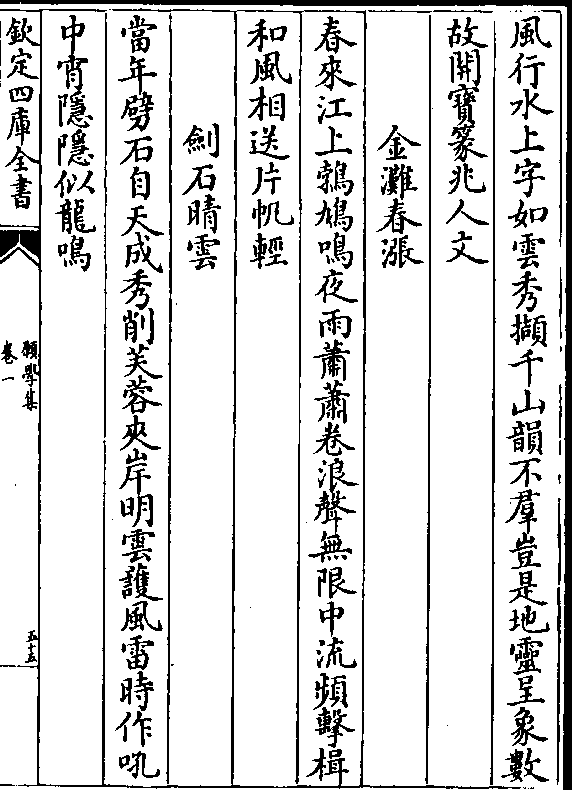 風行水上字如雲秀擷千山韻不羣豈是地靈呈象數
故開寶篆兆人文
金灘春漲
春來江上鶉鳩鳴夜雨蕭蕭卷浪聲無限中流頻擊楫
和風相送片帆輕
劍石晴雲
當年劈石自天成秀削芙蓉夾岸明雲護風雷時作吼
中宵隱隱似龍鳴
欽定四庫全書
願學集
卷一
五十五